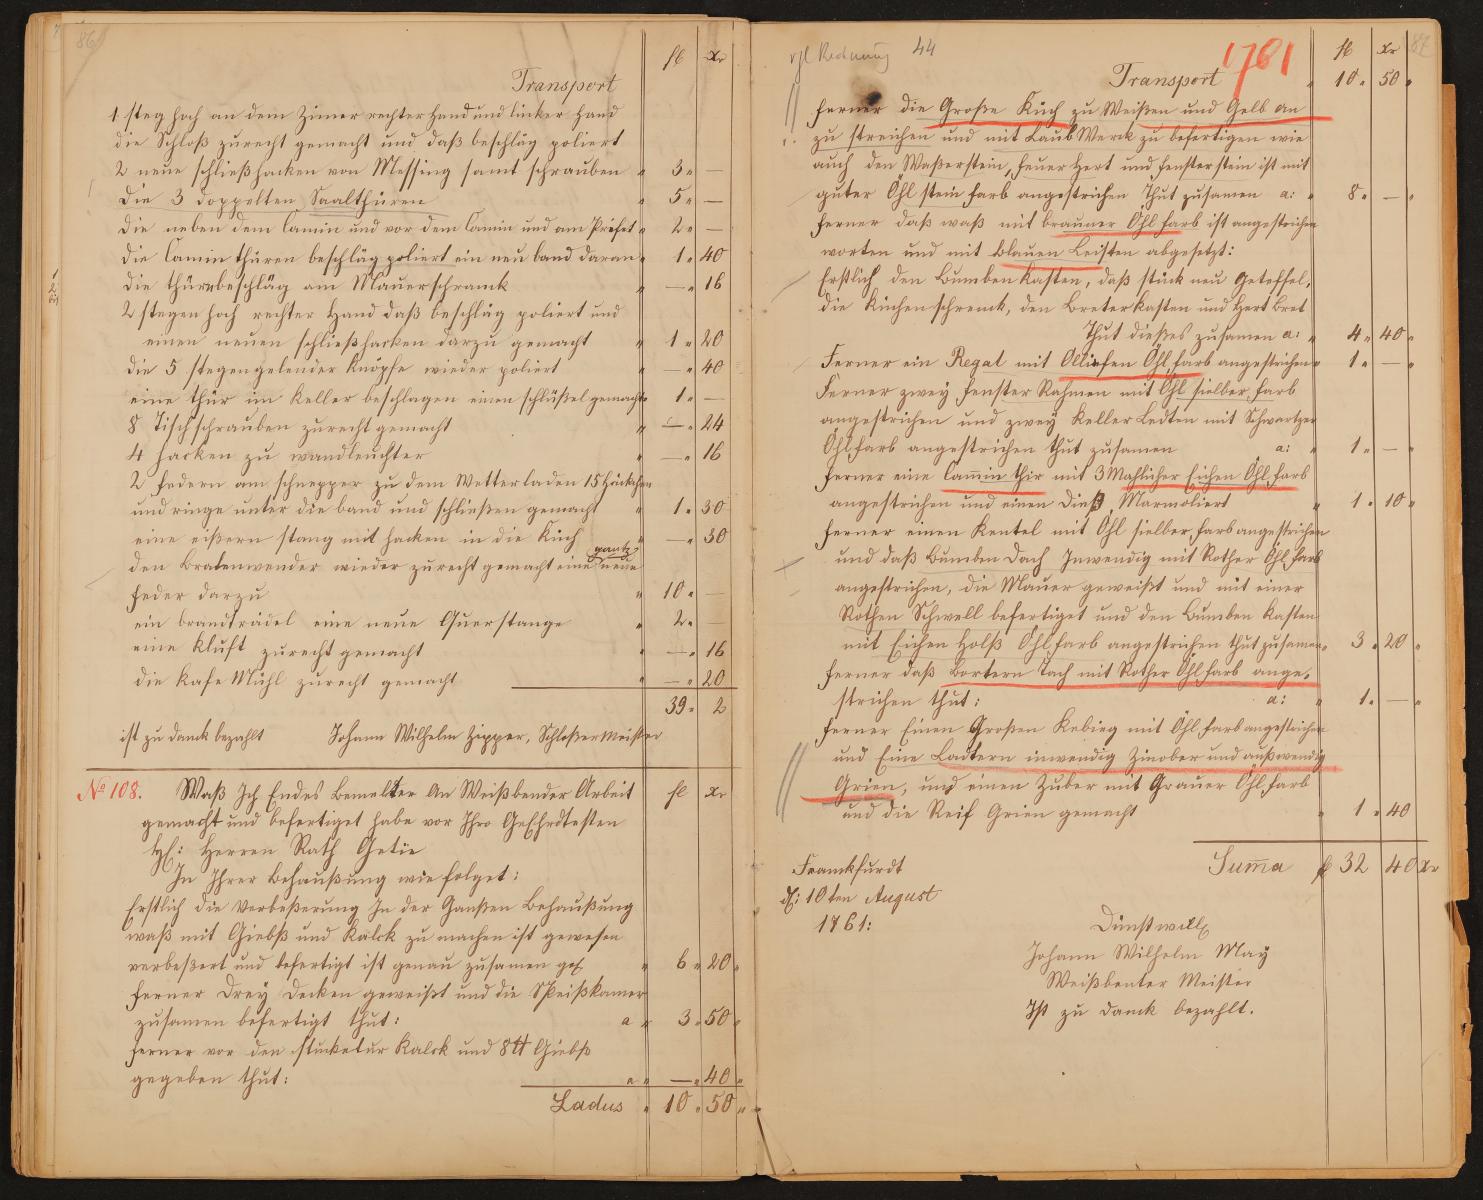 86
fl xr
Transport
1 steg hoch an dem Zimer rechter Hand und lincker Hand
die Schloß zurecht gemacht und daß beschläg poliert
2 neue schließhacken von Messing samt schrauben " 3 " —
die 3 doppelten Saalthüren " 5 " —
die neben dem Camin und vor dem Camin und am Prifet " 2 " —
die Camin thüren beschläg poliert ein neu band daran " 1 " 40
die thürnbeschläg am Mauerschranck " — " 16
2 stegen hoch rechter Hand daß beschläg poliert und
einen neuen schließhacken darzu gemacht " 1 " 20
die 5 stegengelender Knöpfe wieder poliert " — " 40
eine thür im Keller beschlagen einen schlüßel gemacht " 1 " —
8 Tischschrauben zurecht gemacht " — " 24
4 hacken zu wandleuchter " — " 16
2 federn am schnepper zu dem Wetterladen 15 häckchen
und ringe unter die band und schließen gemacht " 1 " 30
eine eißern stang mit hacken in die Küch " — " 30
den Bratenwender wieder zurecht gemacht eine gantz neue
feder darzu " 10 " —
ein brandträdel eine neue Querstange " 2 " —
eine Kluft zurecht gemacht " — " 16
die Kafe Mühl zurecht gemacht " — " 20
39 " 2
ist zu danck bezahlt Johann Wilhelm Zipper, Schloßermeister
No 108. Waß Ich Endes Bemelter An Weißbender Arbeit fl xr
gemacht und befertiget habe vor Ihro GeEhrdtesten
H: Herren Rath Getie
In Ihrer Behaußung wie folget:
Erstlich die Verbeßerung In der Ganßen Behaußung
waß mit Giebß und Kalck zu machen ist gewesen
verbeßert und befertigt ist genau zusamen " 6 " 20 "
ferner Drey Decken geweißt und die Speißkamer
zusamen befertigt thut: a " 3 " 50 "
ferner vor den stuckatur Kalck und 8 ℔ Giebß
gegeben thut: a " — " 40 "
Ladus " 10 " 50 "
87
vgl Rechnung 44
1761
fl xr
Transport " 10 " 50 "
ferner die Große Küch zu Weißen und Gelb an
zu streichen und mit Laub Werck zu befertigen wie
auch den Waßerstein, feuer Hert und fensterstein ist mit
guter Öhl stein farb angestrichen Thut zusamen a: " 8 " — "
ferner daß waß mit brauner Öhl farb ist angestrichen
worten und mit blauen Leisten abgesetzt:
Erstlich den Bumben Kasten, daß stück neu Geteffel,
die Küchenschrenck, den Breterkasten und Hert Bret
Thut dießes zusamen a: " 4 " 40 "
Ferner ein Regal mit Ollisfen Öhlfarb angestrichen " 1 " — "
Ferner zwey fenster Rahmen mit Öhl sielber farb
angestrichen und zwey Keller Ledten mit Schwartzer
Öhlfarb angestrichen thut zusamen a: " 1 " — "
ferner eine Cam̄in thir mit 3 Mahlicher Eichen Öhl farb
angestrichen und einen dieß Marmoliert " 1 " 10 "
ferner einen Kentel mit Öhl sielber farb angestrichen
und daß Bumben Dach Inwendig mit Rother Öhl farb
angestrichen, die Mauer geweißt und mit einer
Rothen Schwell befertiget und den Bumben Kasten
mit Eichen Holß Öhlfarb angestrichen thut zusamen " 3 " 20 "
ferner daß Bortern Tach mit Rother Öhlfarb ange,
strichen thut: a: " 1 " — "
ferner Einen Großen Kebieg mit Öhl farb angestrichen
und Eine Ladtern inwendig Zinober und außwendig
Grien, und einen Zuber mit Grauer Öhl farb
und die Reif Grien gemacht " 1 " 40
Sum̄a fl 32 40 xr
Franckfurdt
d: 10ten August
1761:
Dienstwill
Johann Wilhelm May
Weißbenter Meister
Ist zu danck bezahlt.